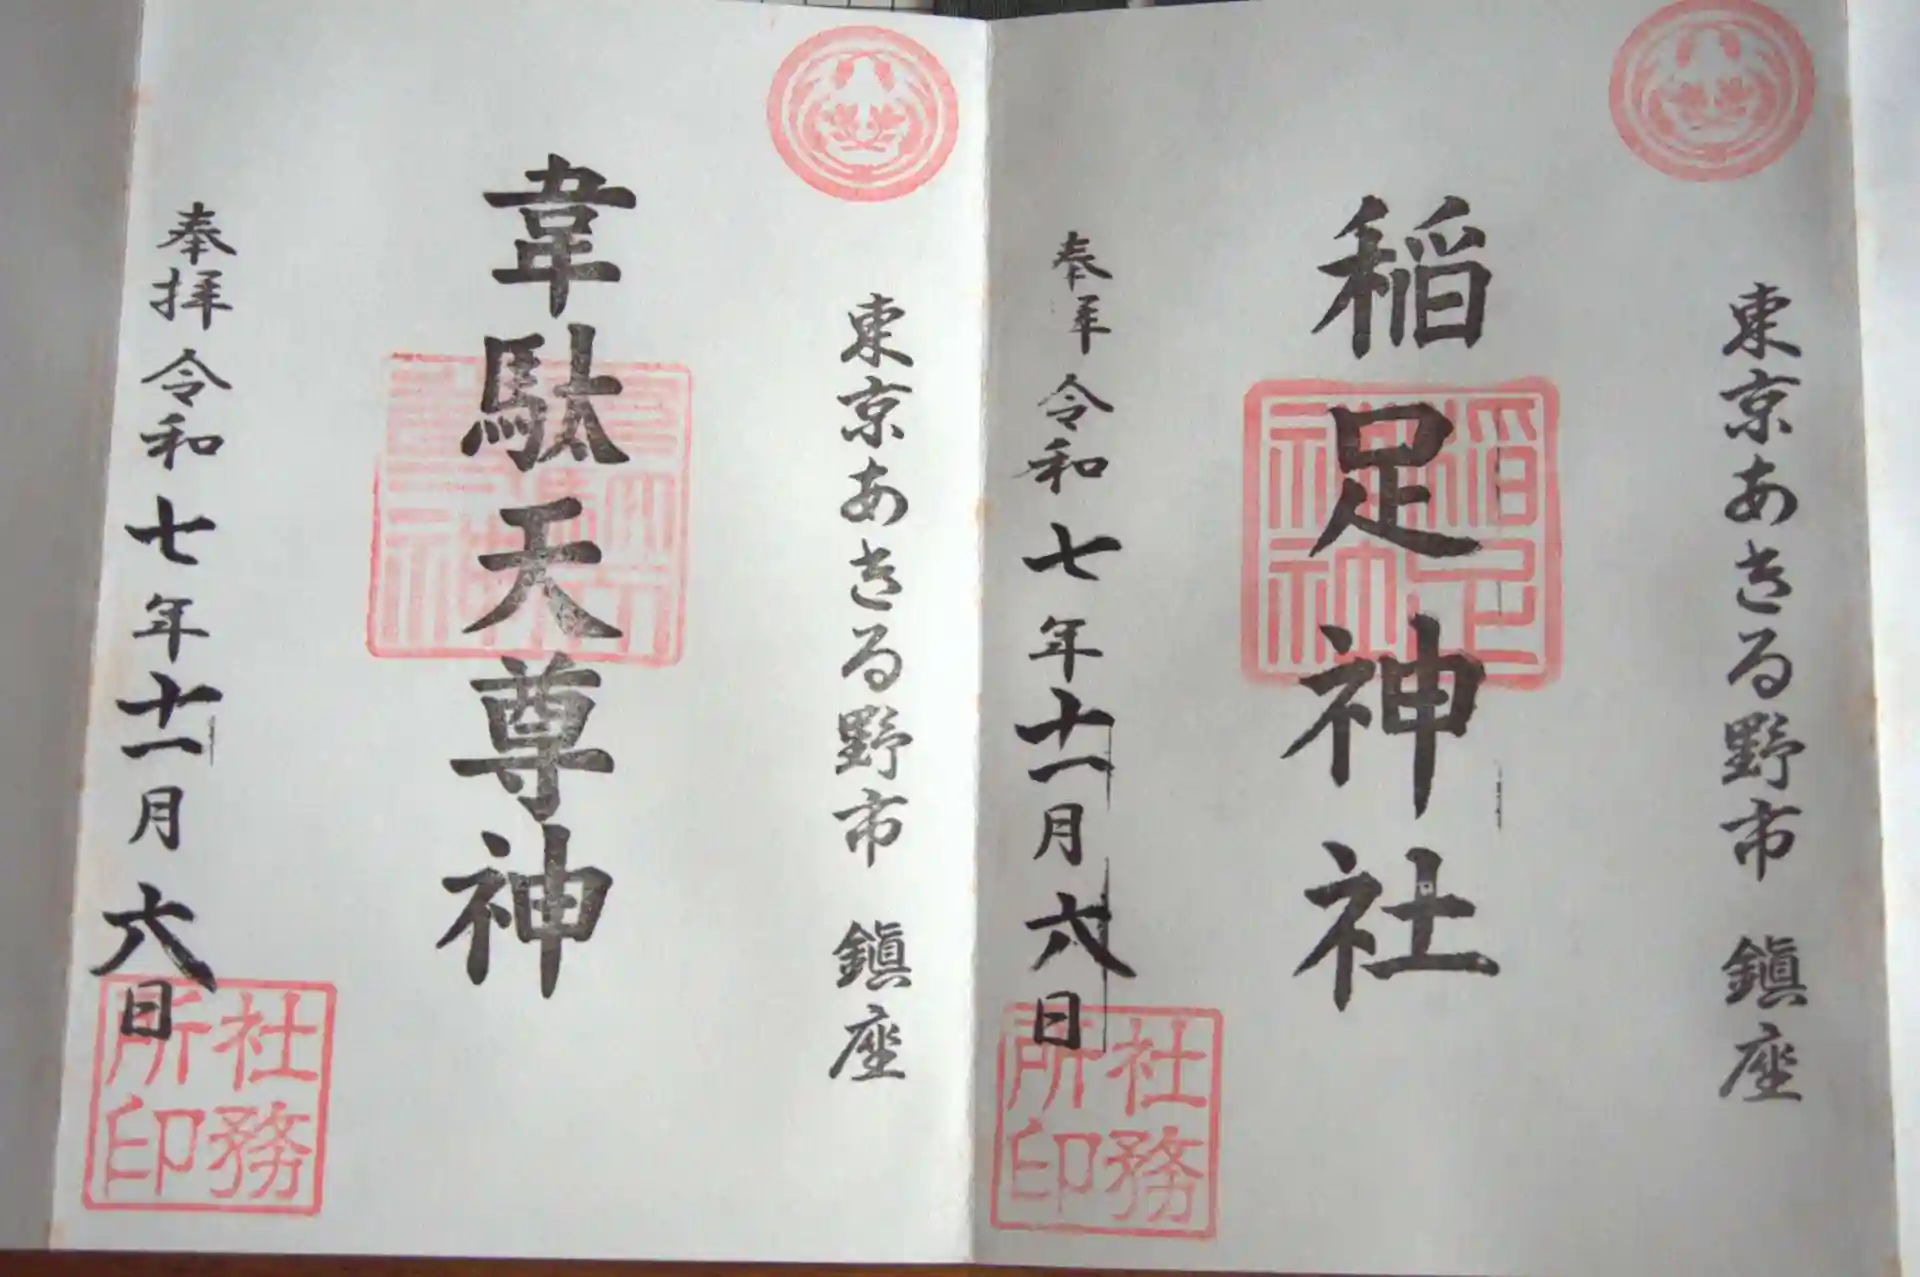 東京あきる野市 鎭座
稲足神社
奉拝 令和七年十一月六日
社務
所印
東京あきる野市 鎭座
韋駄天尊神
奉拝 令和七年十一月六日
社務
所印